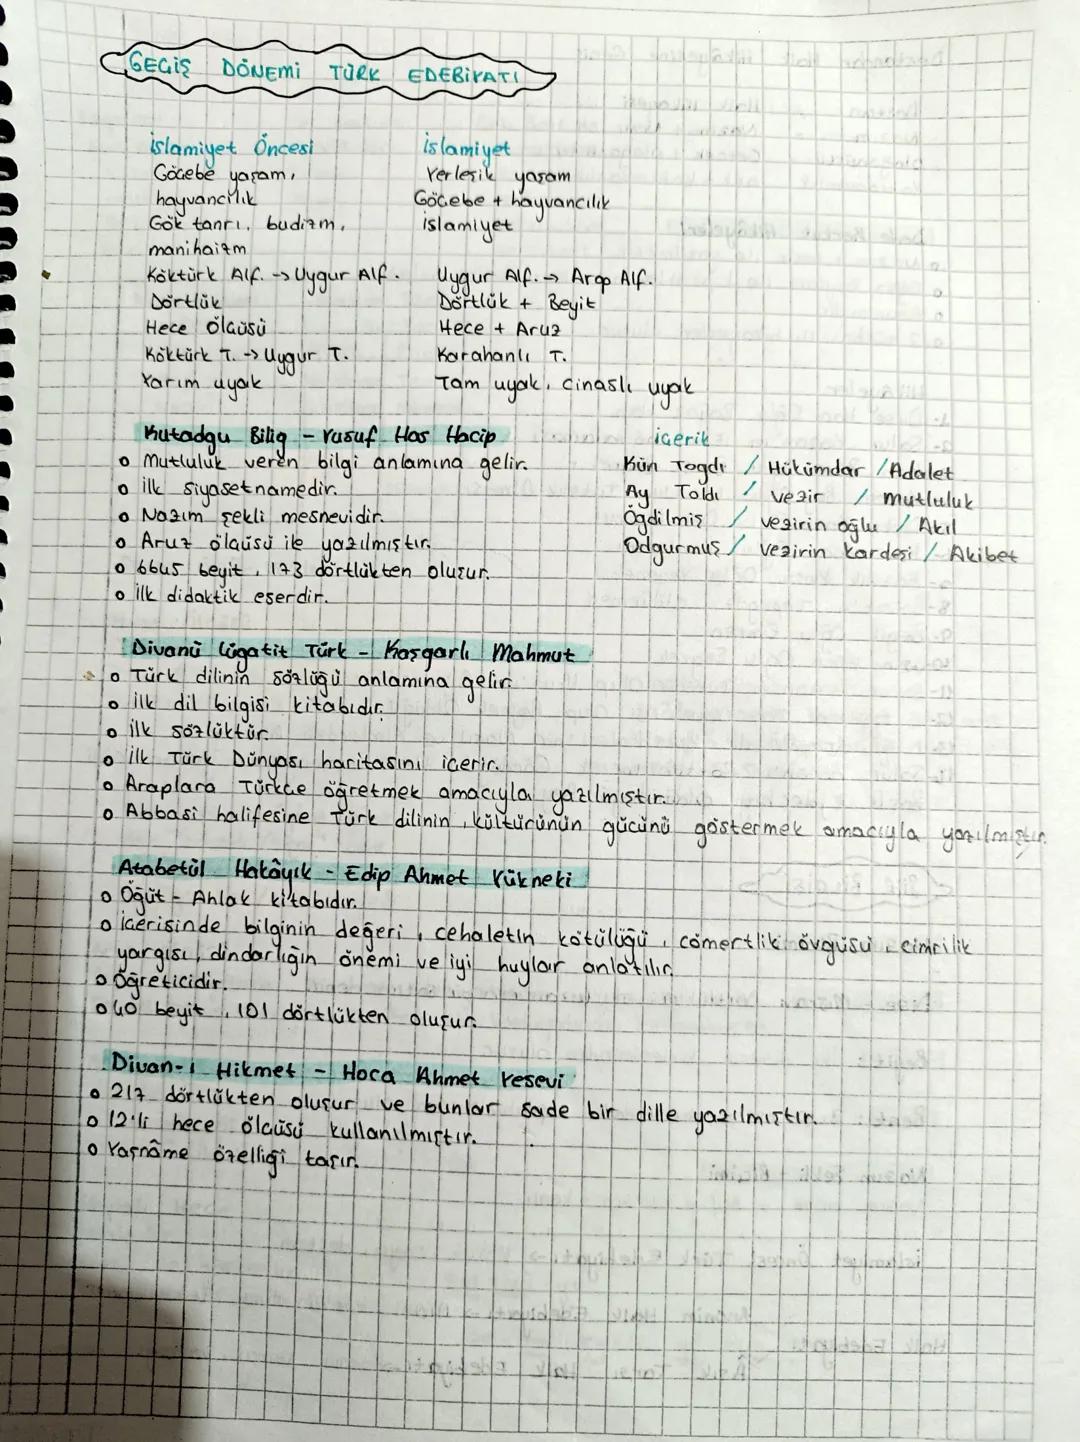 GEÇİŞ DÖNEMİ TÜRK EDEBİYATI
İslamiyet Öncesi
Göçebe yaşam,
hayvancılık
Gök tanrı, budizm,
manihaizm
Köktürk Alf. → Uygur Alf.
Dörtlük
Hece ölçüsü
Köktürk T. → Uygur T.
Yarım uyak
İslamiyet
Yerleşik yaşam
Göçebe + hayvancılık
İslamiyet
Uygur Alf. → Arap Alf.
Dörtlük + Beyit
Hece + Aruz
Karahanlı T.
Tam uyak, cinaslı uyak
Kutadgu Bilig - Yusuf Has Hacip
o Mutluluk veren bilgi anlamına gelir.
o İlk siyasetnamedir.
o Nazım şekli mesnevidir.
o Aruz ölçüsü ile yazılmıştır.
o 6645 beyit, 173 dörtlükten oluşur.
o İlk didaktik eserdir.
içerik
Kün Togdı / Hükümdar / Adalet
Ay Toldı / vezir / mutluluk
Ögdilmiş / vezirin oğlu / Akıl
Odgurmuş / vezirin kardeşi / Akibet
Divanü Lügatit Türk - Kaşgarlı Mahmut
o Türk dilinin sözlüğü anlamına gelir.
o İlk dil bilgisi kitabıdır.
o İlk sözlüktür.
o İlk Türk Dünyası haritasını içerir.
o Araplara Türkçe öğretmek amacıyla yazılmıştır.
o Abbasi halifesine Türk dilinin, kültürünün gücünü göstermek amacıyla yazılmıştır.
Atabetül Hakâyık - Edip Ahmet Yükneki
o Öğüt - Ahlak kitabıdır.
o İçerisinde bilginin değeri, cehaletin kötülüğü, cömertlik övgüsü, cimrilik
yargısı, dindarlığın önemi ve iyi huylar anlatılır.
o Öğreticidir.
o 40 beyit, 101 dörtlükten oluşur.
Divan-ı Hikmet - Hoca Ahmet Yesevi
o 217 dörtlükten oluşur ve bunlar sade bir dille yazılmıştır.
o 12'li hece ölçüsü kullanılmıştır.
o Yaşnâme özelliği taşır.